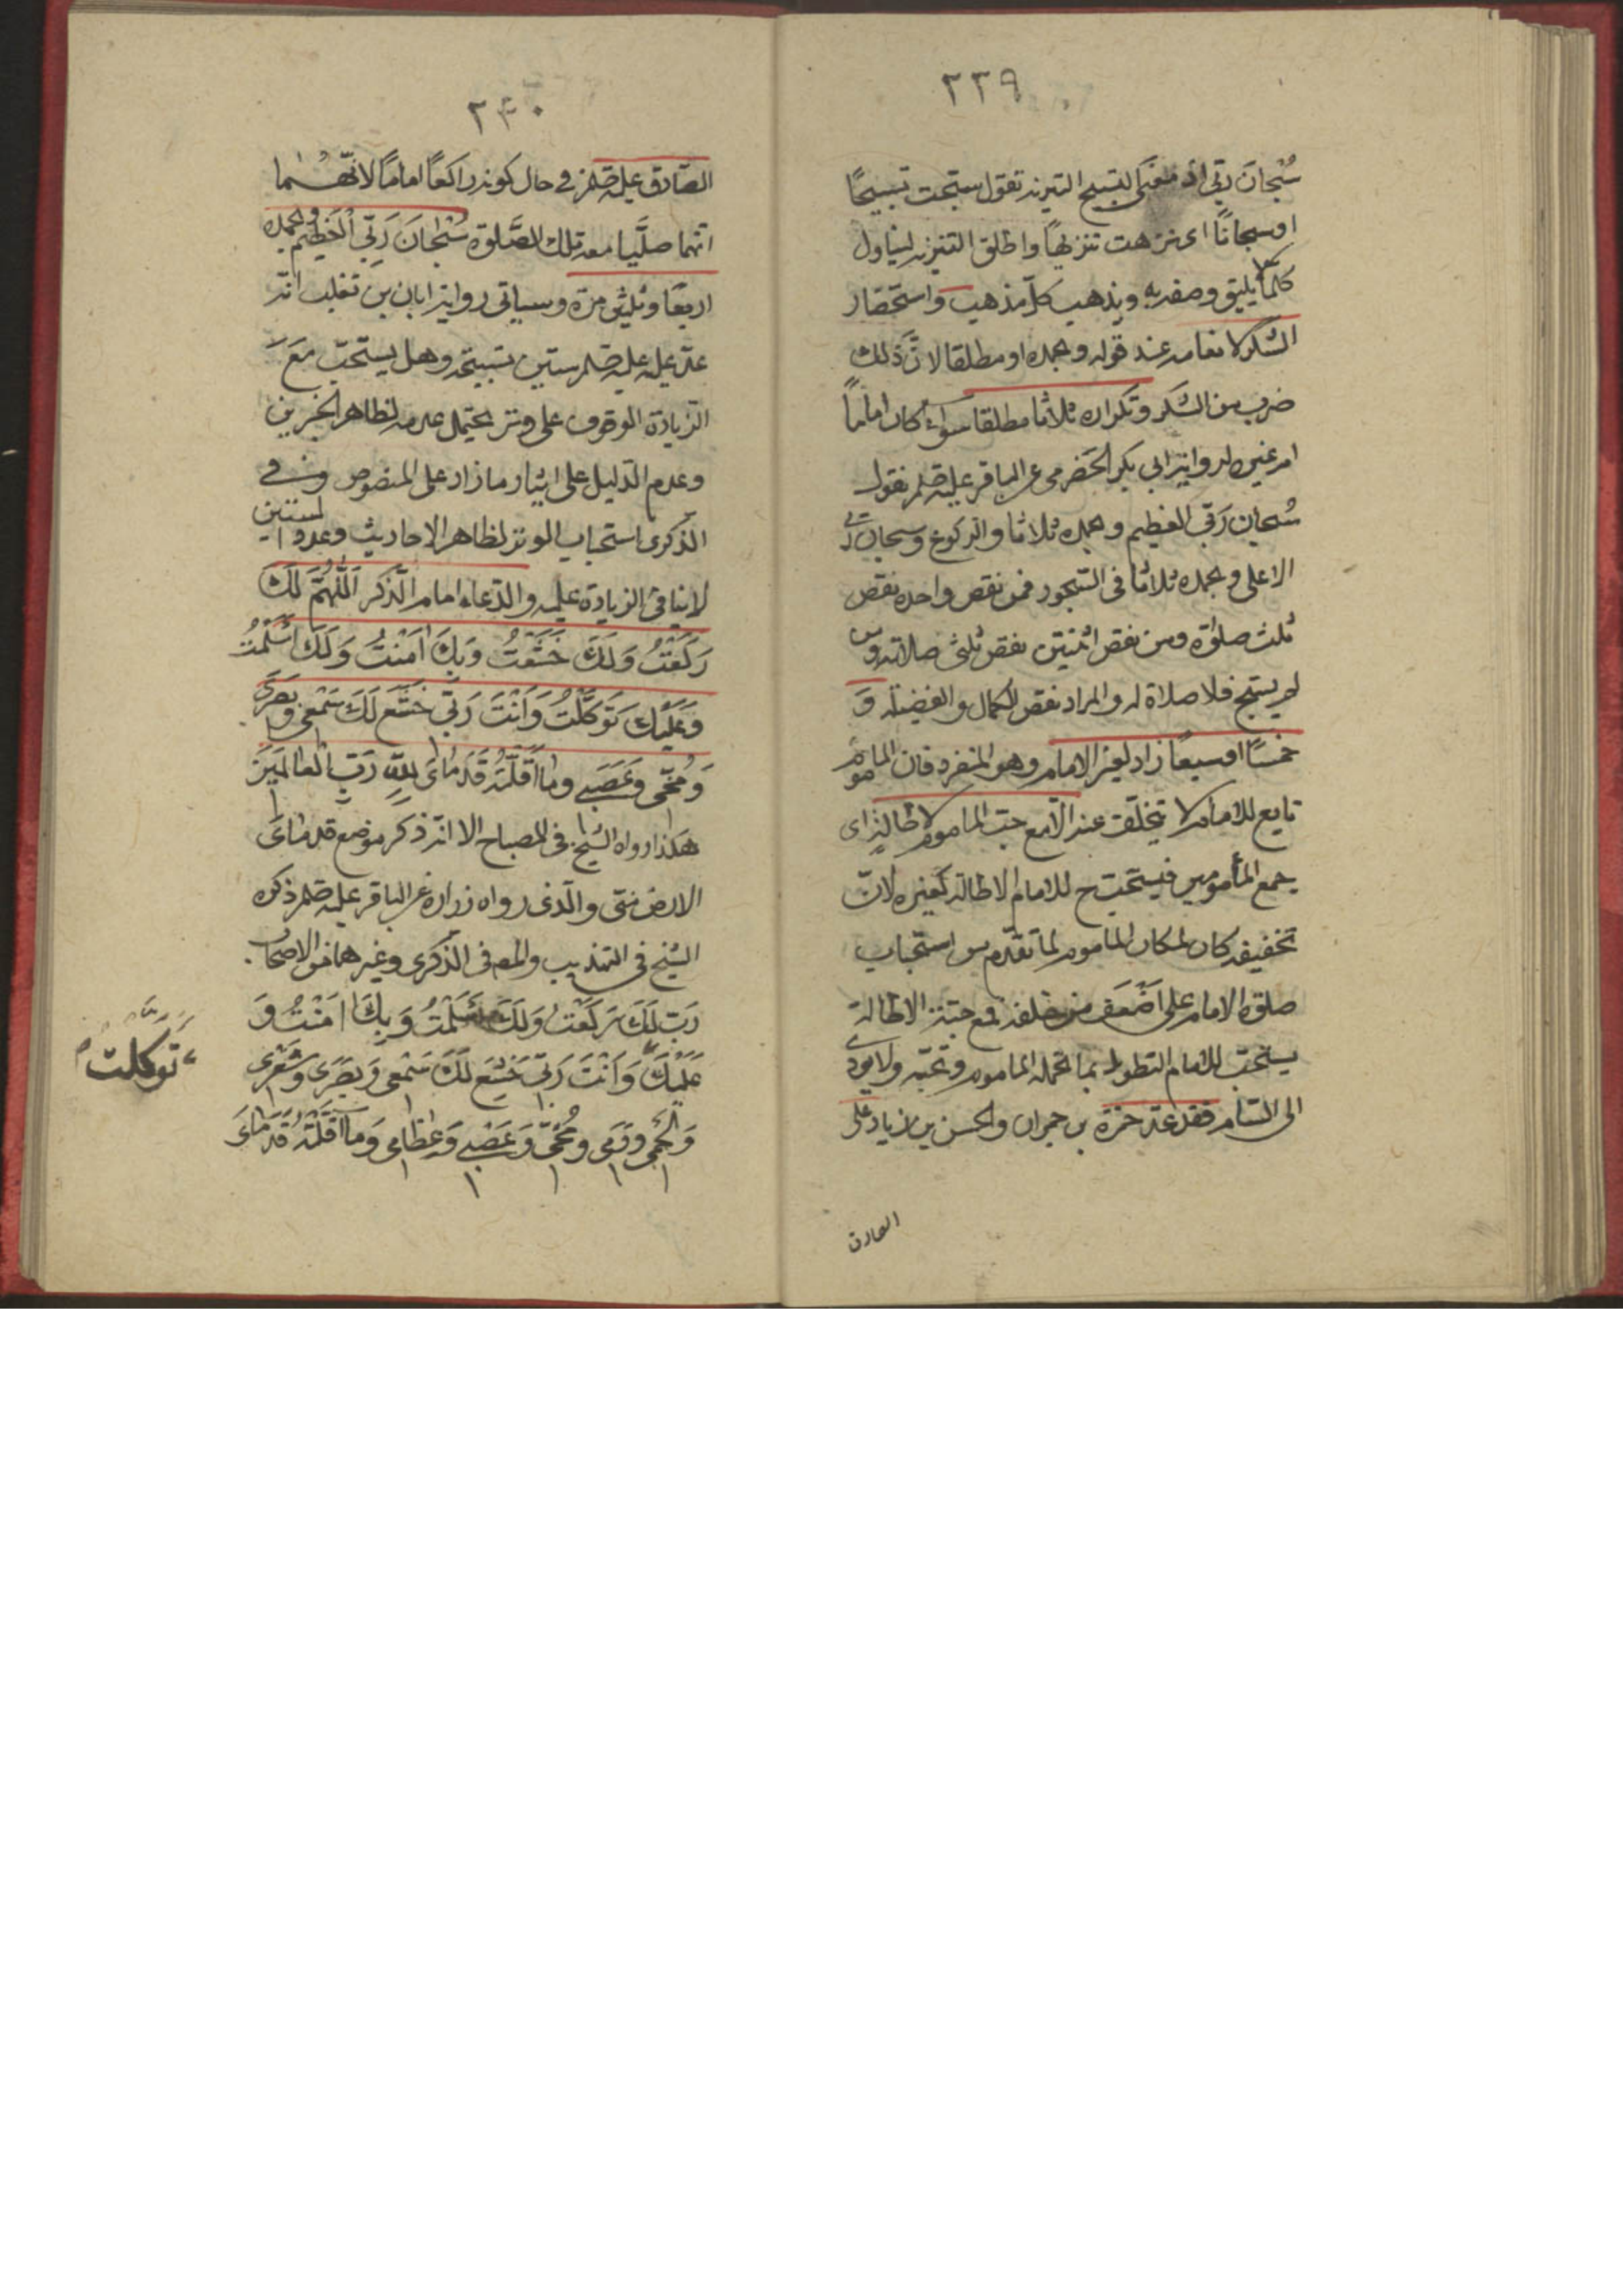 ٢٣٩
سُبْحانَ ربّي اذ معنَى التسبيح التنزيه تقول سبّحت تسبيحًا
او سبحانًا اى نزهت تنزيهًا واطلق التنزيه ليتناول
كلما لا يليق وصفه به ويذهب كلّ مذهب واستحضار
الشكر لانعامه عند قوله وبحمده او مطلقا لانّ ذلك
ضرب من الشكر وتكراره ثلاثا مطلقا سواء كان اماماً
ام غيره لرواية ابي بكر الحضرمى عن الباقر عليه صلم تقول
سُبحان رَبّي العظيم وبحمده ثلاثا فى الركوع وسبحان ربّى
الاعلى وبحمده ثلاثا فى السّجود فمن نقص واحده نقص
ثلث صلوة ومن نقص اثنتين نقص ثلثى صلاته ومن
لم يسبّح فلا صلاة له والمراد نقص الكمال والفضيلة وَ
خمسًا او سبعًا زاد لغير الامام وهو المنفرد فان الماموم
تابع للامام لا يتخلّف عنه الّا مع حبّ الماموم الاطالة اى
جمع المأمومين فيستحبّ ح للامام الاطالة كغيره لانّ
تخفيفه كان لمكان الماموم لما تقدّم من استحباب
صلوة الامام على اَضْعَف من خلفه فمع حبّه الاطالة
يستحب للامام التطويل بما تحمله الماموم وتحبّه ولا يودى
الى السّام فقد عدّ حمزة بن حمران والحسن بن زياد على
الصادق
٢٤٠
الصّادق عليه صلم في حال كونه راكعًا امامًا لانّهُما
انهما صلَّيا معه تلك الصَّلوة سُبْحانَ رَبّي الْعَظيم وبحمده
اربعًا وثلثين مرّة وسياتى رواية ابان بن تغلب انّه
عدّ عليه عليه صلم ستين تسبيحة وهل يستحبّ مَعَ
الزيادة الوقوف على وتر يحتمل عدمه لظاهر الخبرين
وعدم الدّليل على ايثار ما زاد على المنصوص وفي
الذكرى استحباب الوتر لظاهر الاحاديث وعدوا الستين
لا ينافى الزيادة عليه والدّعاء امام الذّكر اَللّٰهُمَّ لَكَ
رَكَعْتُ وَلَكَ خَشَعْتُ وَبِكَ اٰمَنْتُ وَلَكَ اَسْلَمْتُ
وَعَلَيْكَ تَوَكَّلْتُ وَاَنْتَ رَبّي خَشَعَ لَكَ سَمْعي وَبَصَرى
وَمُخّى وَعَصَبي وما اَقَلَّتْهُ قَدَماىَ لِلّهِ رَبِّ الْعالَمينَ
هكذا رواه الشيخ في المصباح الا انّه ذكر موضع قدماىَ
الارض منّى والّذى رواه زراره عن الباقر عليه صلم ذكره
الشيخ فى التهذيب والمصـ فى الذكرى وغيرهما من الاصحاب
رَبِّ لَكَ رَكَعْتُ وَلَكَ اَسْلَمْتُ وَبِكَ اٰمَنْتُ وَ
عَلَيْكَ وَاَنْتَ رَبّي خَشَعَ لَكَ سَمْعى وَبَصَرى وَشَعْرى
وَلَحْمى وَدَمى وَمُخّى وَعَصَبي وَعِظامى وَما اَقَلَّتْهُ قَدَماىَ
تَوَكَّلْتُ